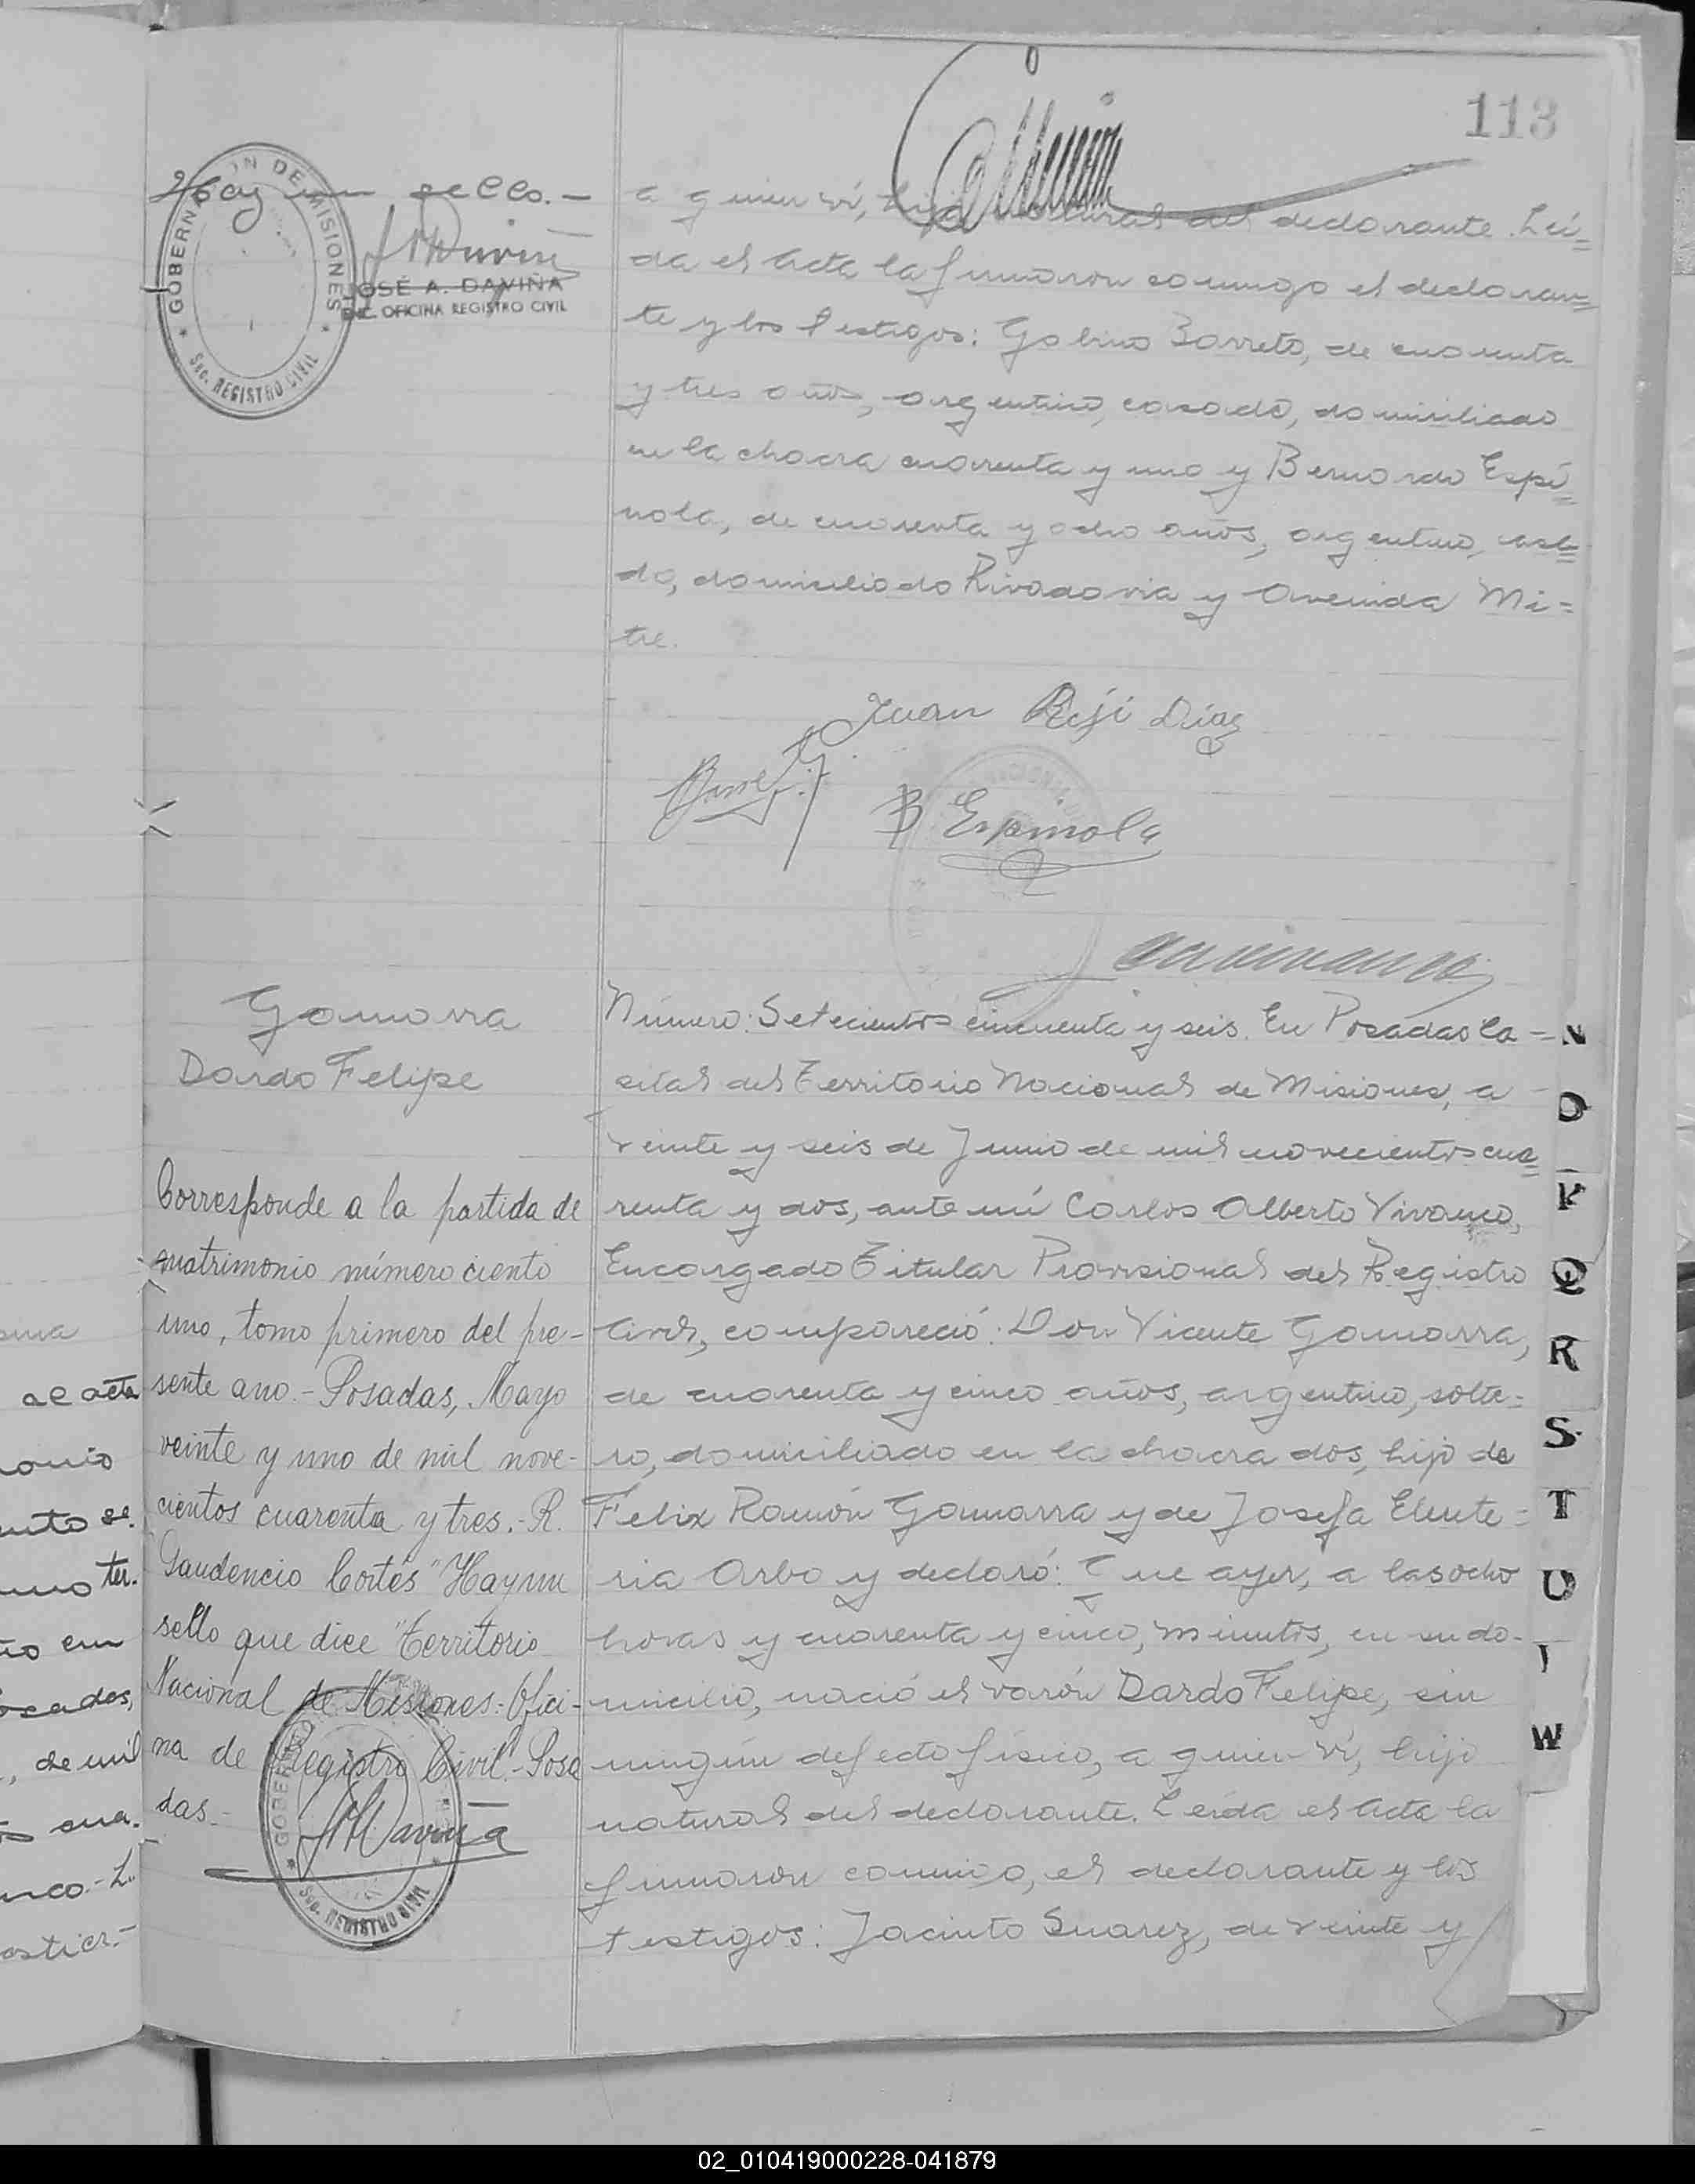 113
Hay un sello.-
GOBERNACION DE MISIONES
Sec. REGISTRO CIVIL
JOSÉ A. DAVIÑA
ENC. OFICINA REGISTRO CIVIL
a quien ví, natural del declarante. Leí=
da el Acta la firmaron conmigo el declaran=
te y los testigos: Gabino Barreto, de cuarenta
y tres años, argentino, casado, domiciliado
en la chacra cuarenta y uno y Bernardo Espí=
nola, de cuarenta y ocho años, argentino, casa=
do, domiciliado Rivadavia y Avenida Mi=
tre.
Juan Díaz
B Espinola
Gamarra
Dardo Felipe
Corresponde a la partida de
matrimonio número ciento
uno, tomo primero del pre-
sente ano.- Posadas, Mayo
veinte y uno de mil nove-
cientos cuarenta y tres.- R.
Gaudencio Cortés" Hay un
sello que dice "Territorio
Nacional de Misiones: Ofici-
na de Registro Civil".- Posa
das.-
Sec. REGISTRO CIVIL
Número: Setecientos cincuenta y seis. En Posadas Ca-
pital del Territorio Nacional de Misiones, a
veinte y seis de Junio de mil novecientos cua=
renta y dos, ante mí Carlos Alberto Vivanco,
Encargado Titular Provisional del Registro
Civil, compareció: Don Vicente Gamarra,
de cuarenta y cinco años, argentino, solte=
ro, domiciliado en la chacra dos, hijo de
Felix Ramón Gamarra y de Josefa Eleute=
ria Arbo y declaró: Que ayer, a las ocho
horas y cuarenta y cinco, minutos, en su do-
micilio, nació el varón Dardo Felipe, sin
ningún defecto físico, a quien ví, hijo
natural del declarante. Leída el Acta la
firmaron conmigo, el declarante y los
testigos: Jacinto Suarez, de veinte y
Q
R
S
T
U
W
al acta
, de mil
02_010419000228-041879